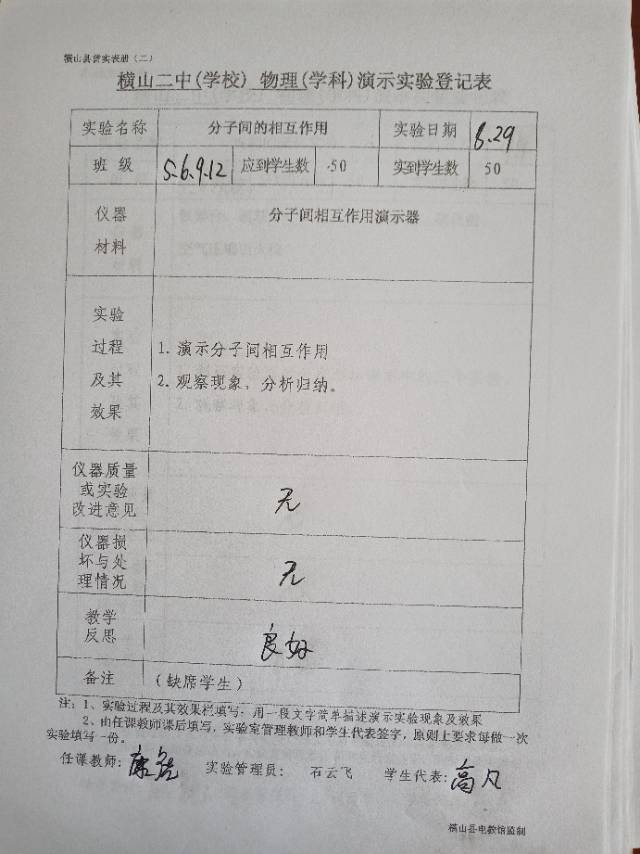 横山县普实表册（二）
横山二中(学校) 物理(学科)演示实验登记表
实验名称 分子间的相互作用 实验日期 8.29
班 级 5.6.9.12 应到学生数 50 实到学生数 50
仪器
材料
分子间相互作用演示器
实验
过程
及其
效果
1. 演示分子间相互作用
2. 观察现象，分析归纳。
仪器质量
或实验
改进意见
无
仪器损
坏与处
理情况
无
教学
反思
良好
备注 （缺席学生）
注：1、实验过程及其效果栏填写：用一段文字简单描述演示实验现象及效果
2、由任课教师课后填写，实验室管理教师和学生代表签字，原则上要求每做一次
实验填写一份。
任课教师： 实验管理员： 石云飞 学生代表: 高凡
横山县电教馆监制